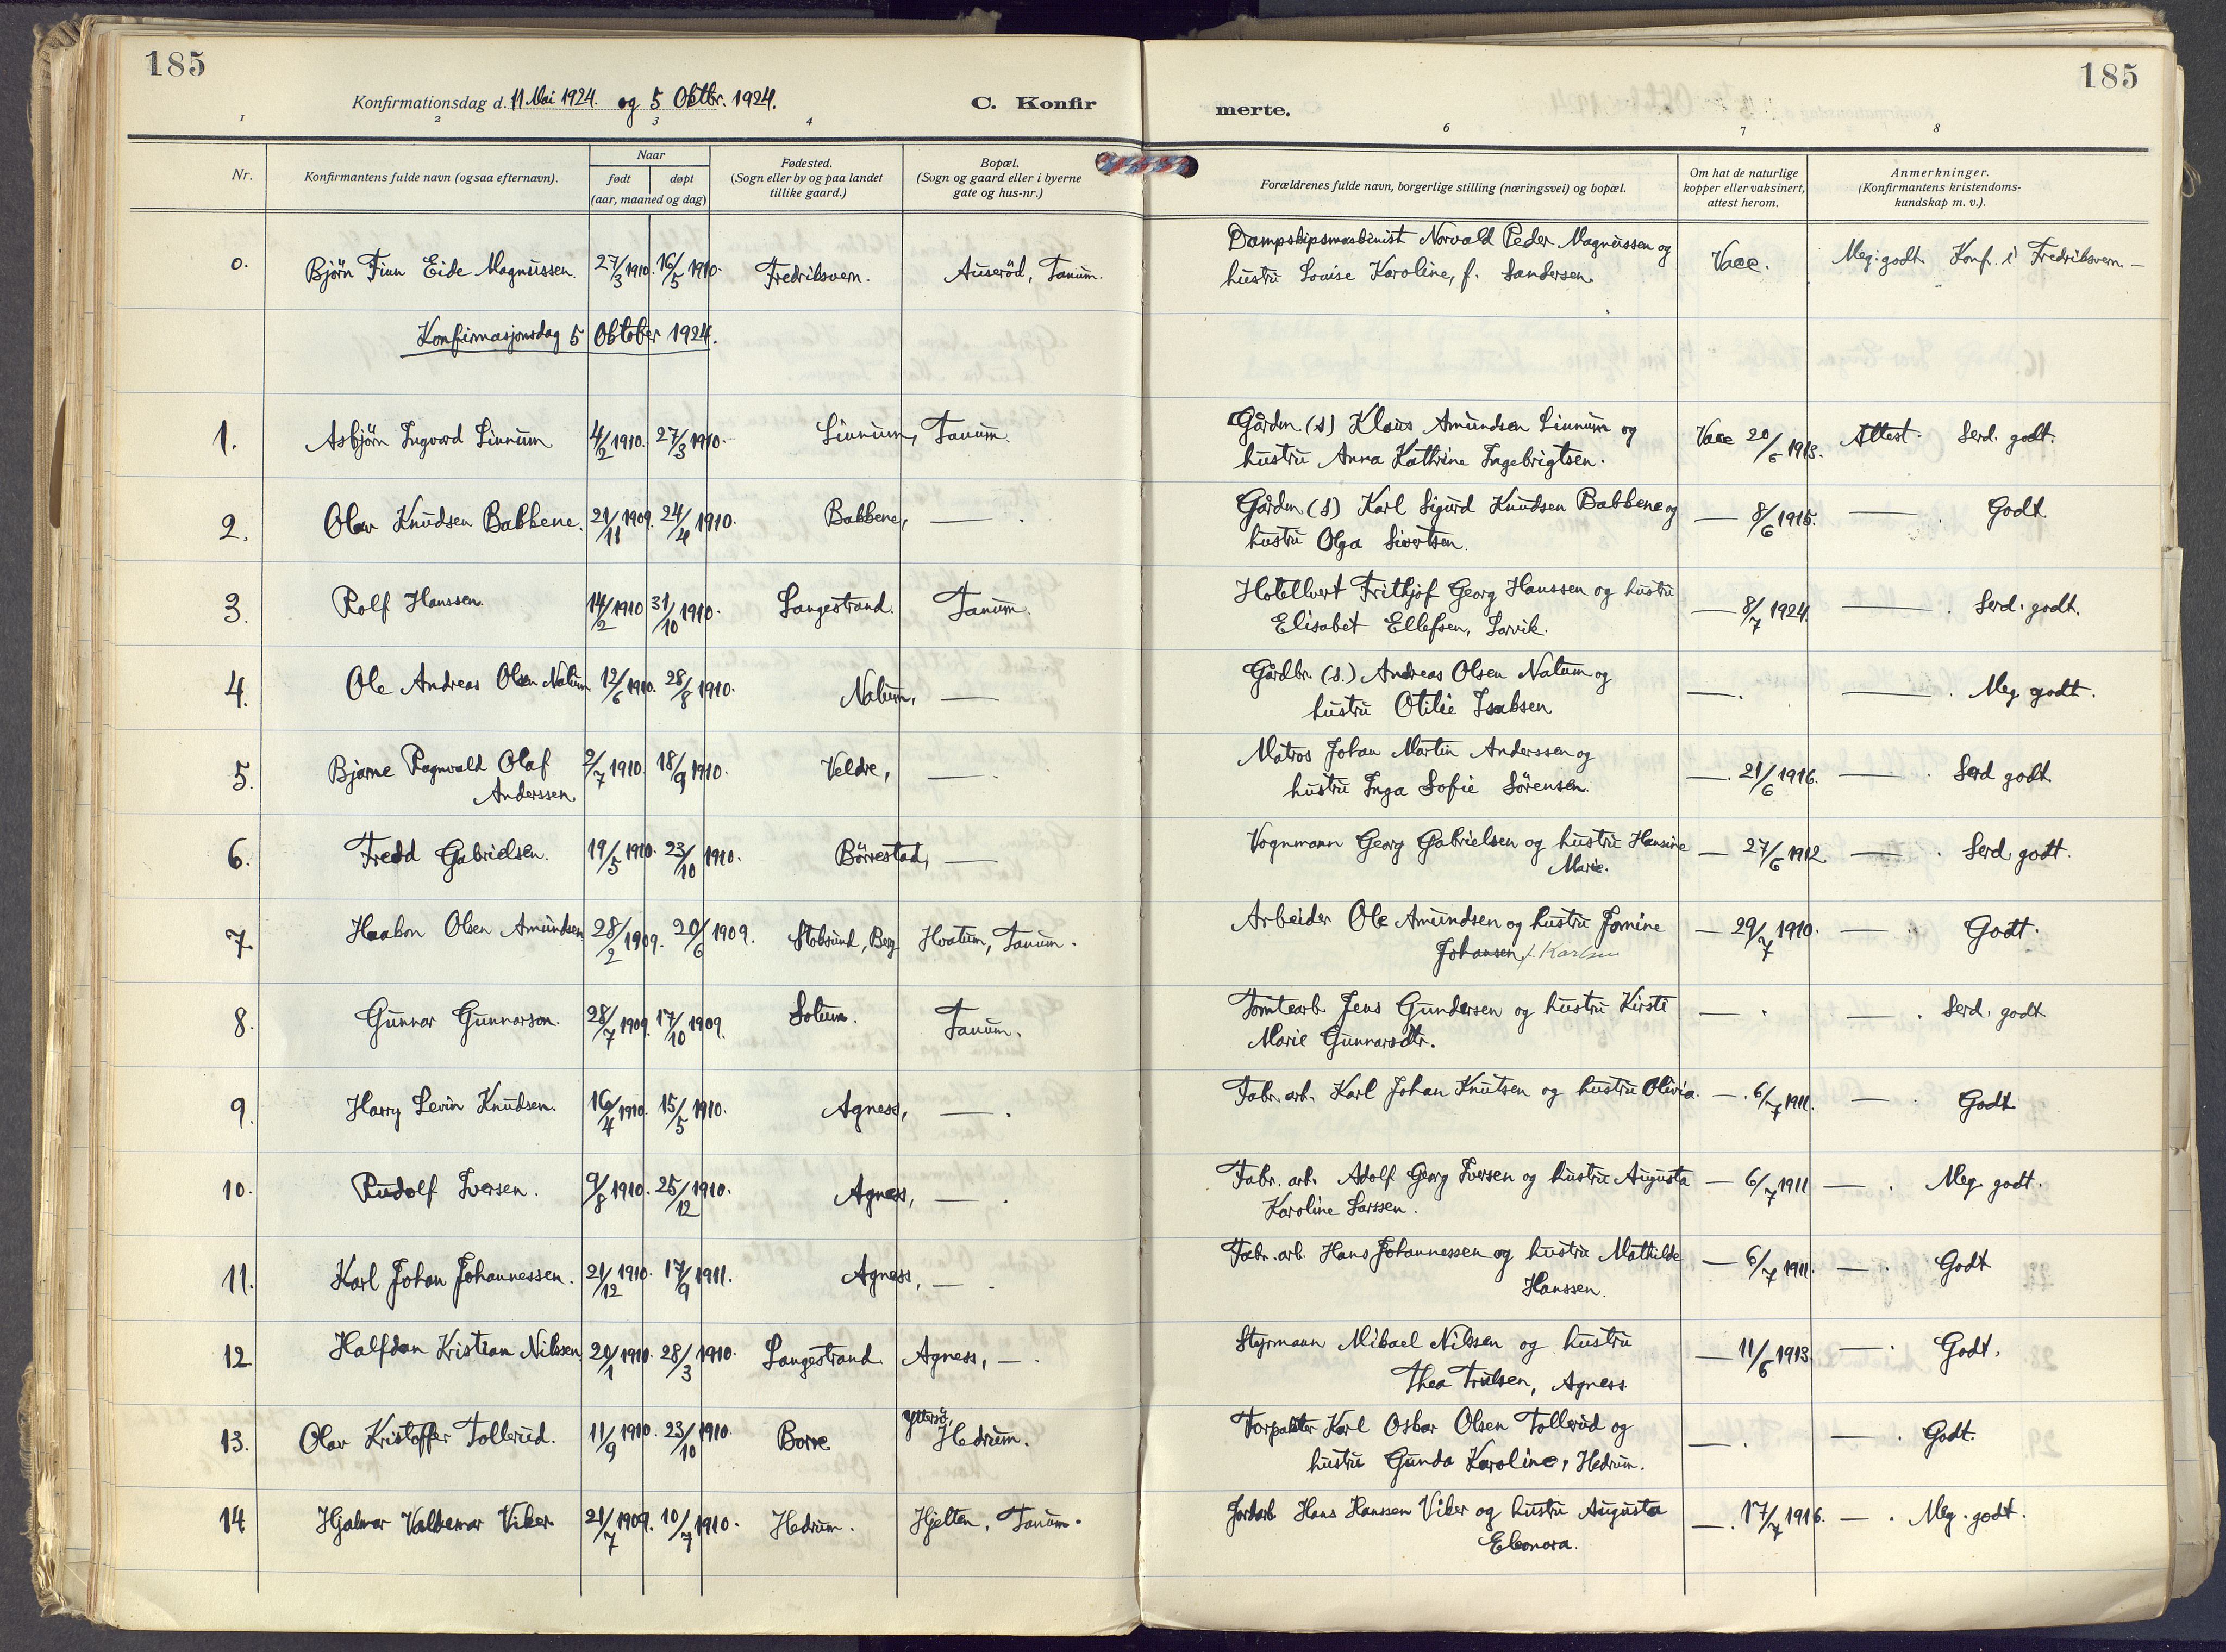 185
185
Konfirmationsdag d. 11 Mai 1924. og 5 Oktbr. 1924.
C. Konfir
merte.
1 2 3 4 6 7 8
Nr.
Konfirmantens fulde navn (ogsaa efternavn).
Naar
født
døpt
(aar, maaned og dag)
Fødested.
(Sogn eller by og paa landet
tillike gaard.)
Bopæl.
(Sogn og gaard eller i byerne
gate og hus-nr.)
Forældrenes fulde navn, borgerlige stilling (næringsvei) og bopæl.
Om hat de naturlige
kopper eller vaksinert,
attest herom.
Anmerkninger.
(Konfirmantens kristendoms-
kundskap m. v.).
0. Björn Finn Eide Magnussen. 27/3 1910. 16/5 1910. Fredriksvern. Auseröd, Tanum. Dampskipsmaskinist Norvald Peder Magnussen og
hustru Louise Karoline, f. Sandersen. Vacc. Meg. godt. Konf. i Fredriksvern. —
Konfirmasjonsdag 5 Oktober 1924.
1. Asbjörn Ingvard Linnum 4/2 1910. 27/3 1910. Linnum, Tanum. Gårdm (s) Klaus Amundsen Linnum og
hustru Anna Kathrine Ingebrigtsen. Vacc 20/6 1913. Attest. Serd. godt.
2. Olav Knudsen Bakkene. 21/11 1909. 24/4 1910. Bakkene, — . Gårdm (S) Karl Sigurd Knudsen Bakkene og
hustru Olga Sivertsen. — 8/6 1915. — . Godt.
3. Rolf Hanssen. 14/2 1910 31/10 1910. Langestrand. Tanum. Hotellvert Frithjof Georg Hanssen og hustru
Elisabet Ellefsen, Larvik. — 8/7 1924. — . Serd. godt.
4. Ole Andreas Olsen Nalum 12/6 1910. 28/8 1910. Nalum, — Gårdbr. (s.) Andreas Olsen Nalum og
hustru Otilie Isaksen — . — . Meg godt.
5. Bjarne Ragnvald Olaf
Anderssen. 2/7 1910. 18/9 1910. Veldre, — . Matros Johan Martin Anderssen og
hustru Inga Sofie Sörensen. — . 21/6 1916. — . Serd godt.
6. Fredd Gabrielsen. 19/5 1910. 23/10 1910. Börrestad, — Vognmann Georg Gabrielsen og hustru Hansine
Marie. — 27/6 1912 — . Serd godt.
7. Haakon Olsen Amundsen 28/2 1909. 20/6 1909. Stoksund, Berg Hvatum, Tanum. Arbeider Ole Amundsen og hustru Jornine
Johansen f. Karlsen — 29/7 1910. — . Godt.
8. Gunnar Gunnarson. 28/7 1909. 17/10 1909. Solum. Tanum. Tomtearb. Jens Gundersen og hustru Kirsti
Marie Gunnarsdtr. — . — . Serd. godt
9. Harry Levin Knudsen. 16/4 1910. 15/5 1910. Agness, — . Fabr. arb. Karl Johan Knutsen og hustru Olivia. — . 6/7 1911. — . Godt.
10. Rudolf Iversen. 9/8 1910. 25/12 1910. Agness, — . Fabr. arb. Adolf Georg Iversen og hustru Augusta
Karoline Larssen. — 6/7 1911 — . Meg godt.
11. Karl Johan Johannessen. 21/12 1910. 17/9 1911. Agness, — . Fabr. arb. Hans Johannessen og hustru Mathilde
Hanssen. — 6/7 1911. — . Godt
12 Halfdan Kristian Nilssen. 20/1 1910. 28/3 1910. Langestrand. Agness, — . Styrmann Mikael Nilssen og hustru
Thea Trulsen, Agness. — 11/6 1913. — . Godt.
13. Olav Kristoffer Tollerud. 11/9 1910. 23/10 1910. Borre Yttersö,
Hedrum. Forpakter Karl Oskar Olsen Tollerud og
hustru Gunda Karoline, Hedrum. — . — . Godt.
14 Hjalmar Valdemar Viker. 21/7 1909. 10/7 1910. Hedrum. Hjelten, Tanum. Jordarb Hans Hanssen Viker og hustru Augusta
Eleonora. — . 17/7 1916. — . Meg. godt.